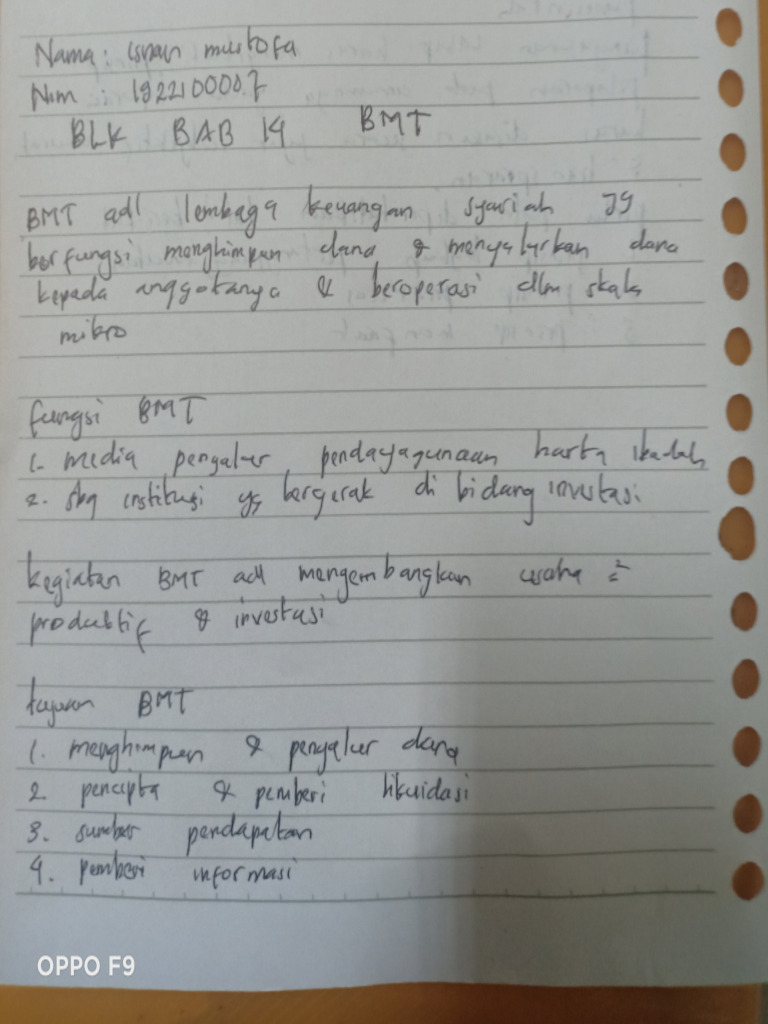 Nama: Ispan mustofa
Nim : 1922100007
BLK BAB 14 BMT
BMT adl lembaga keuangan syariah yg
berfungsi menghimpun dana & menyalurkan dana
kepada anggotanya & beroperasi dlm skala
mikro
fungsi BMT
1. media penyalur pendayagunaan harta ibadah
2. sbg institusi yg bergerak di bidang investasi.
kegiatan BMT adl mengembangkan usaha ²
produktif & investasi
tujuan BMT
1. menghimpun & penyalur dana
2. pencipta & pemberi likuidasi
3. sumber pendapatan
4. pemberi informasi
OPPO F9